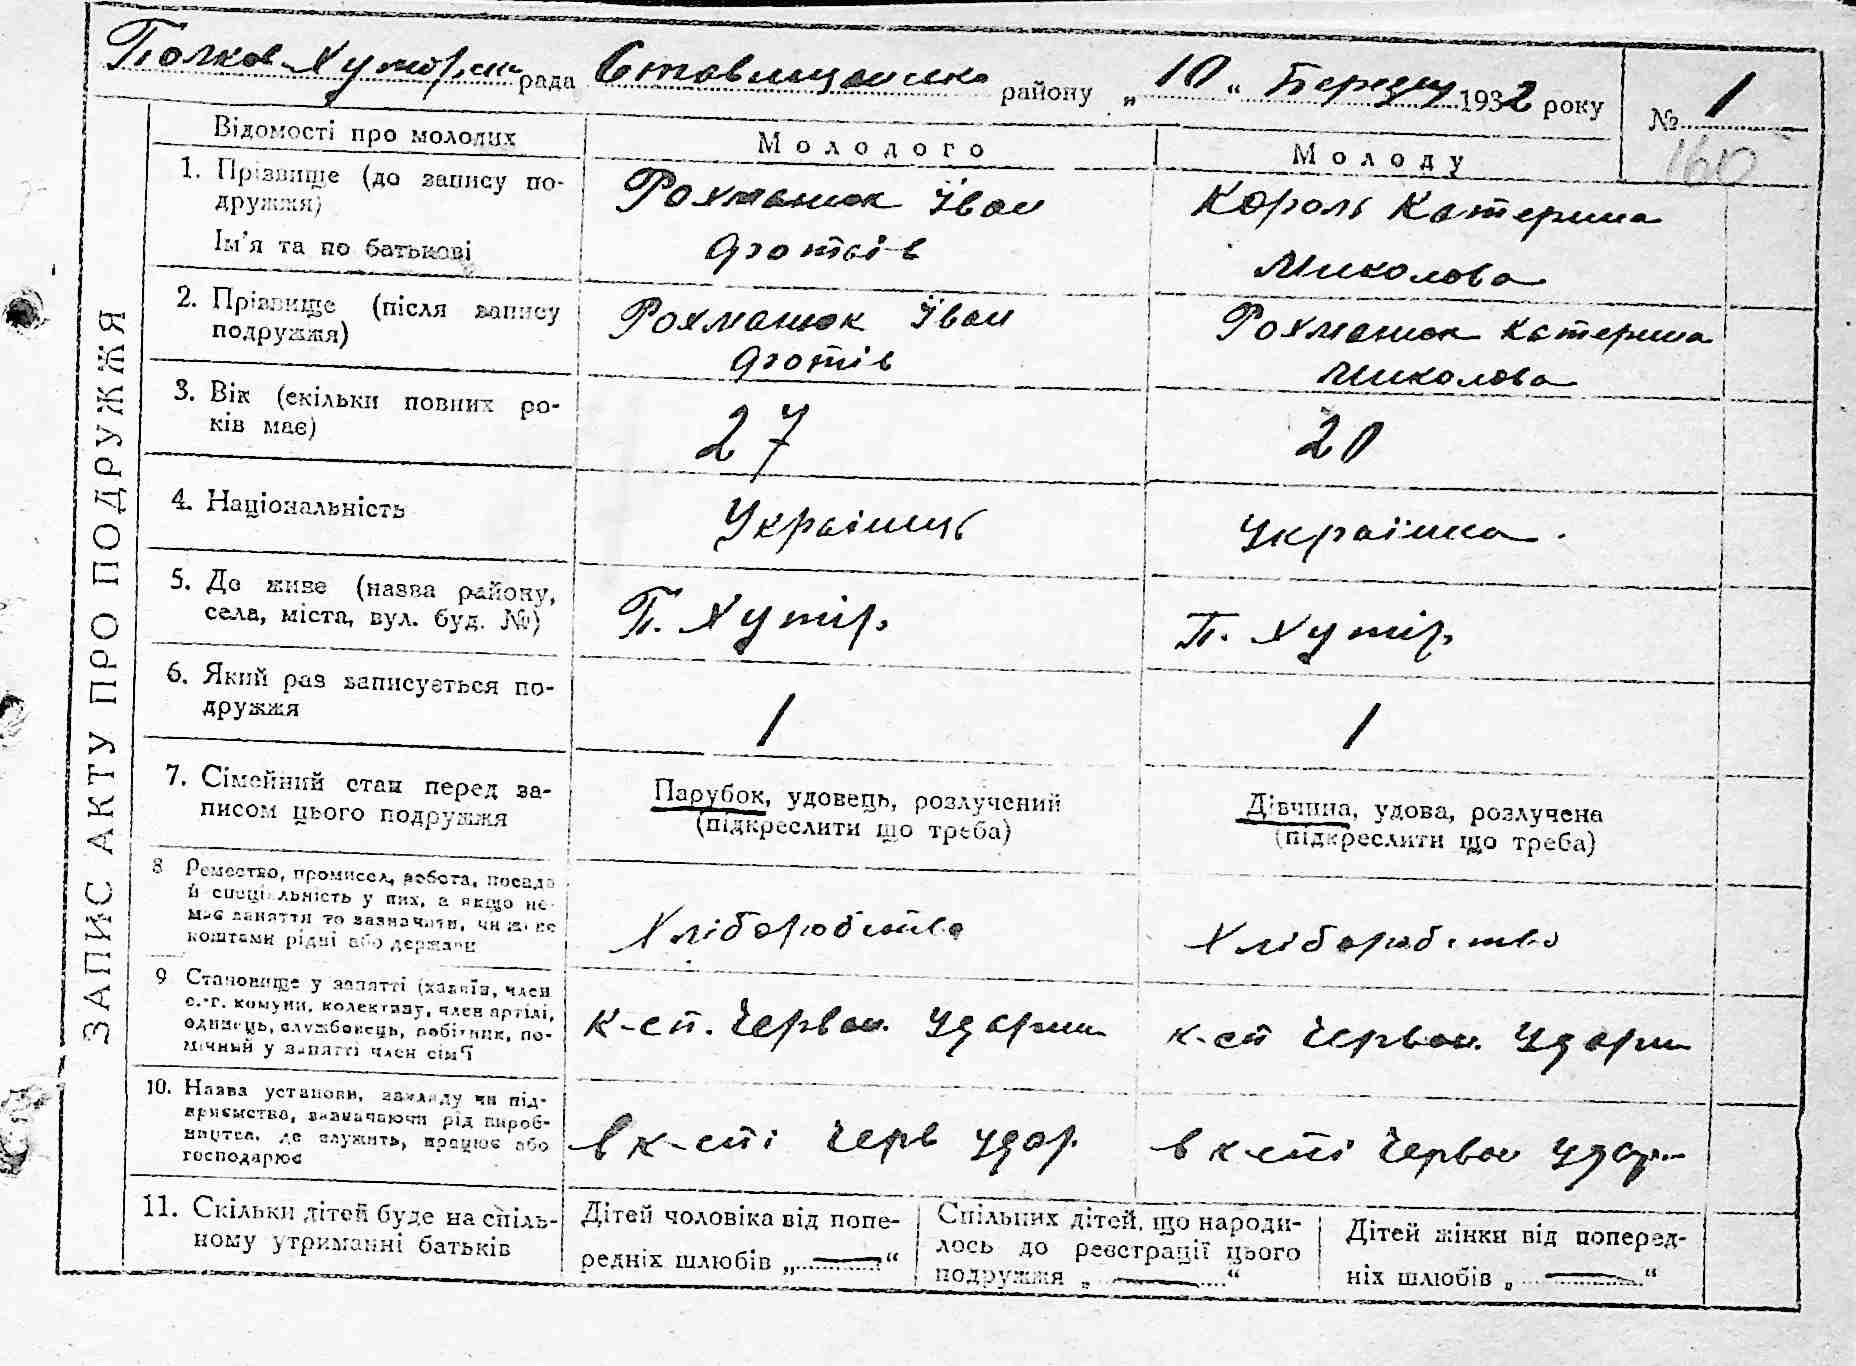 Полков-Хуторян рада Ставищанська району „10“ Березня 1932 року № 1
160
ЗАПИС АКТУ ПРО ПОДРУЖЖЯ
Відомості про молодих Молодого Молоду
1. Прізвище (до запису по-
дружжя)
Ім'я та по батькові
Рохманюк Іван
Король Катерина
Миколова
2. Прізвище (після запису
подружжя)
Рохманюк Іван
Рохманюк Катерина
Миколова
3. Вік (скільки повних ро-
ків має)
27 20
4. Національність
Українець Українка
5. Де живе (назва району,
села, міста, вул. буд. №)
П. Хутір П. Хутір
6. Який раз записується по-
дружжя
1 1
7. Сімейний стан перед за-
писом цього подружжя
Парубок, удовець, розлучений
(підкреслити що треба)
Дівчина, удова, розлучена
(підкреслити що треба)
8 Ремество, промисел, робота, посада
й спеціальність у них, а якщо не-
має заняття то зазначити, чи живе
коштами рідні або держави
Хліборобство Хліборобство
9 Становище у занятті (хазяїн, член
с.-г. комуни, колективу, член артілі,
одинець, службовець, робітник, по-
мічний у занятті член сім'ї
к-сп. Червон. Ударни к-сп Червон. Ударн
10. Назва установи, закладу чи під-
приємства, зазначаючи рід вироб-
ництва, де служить, працює або
господарює
в к-спі Черв удар. в к-спі Червон удар
11. Скільки дітей буде на спіль-
ному утриманні батьків
Дітей чоловіка від попе-
редніх шлюбів „—“
Спільних дітей, що народи-
лось до реєстрації цього
подружжя „—“
Дітей жінки від поперед-
ніх шлюбів „—“